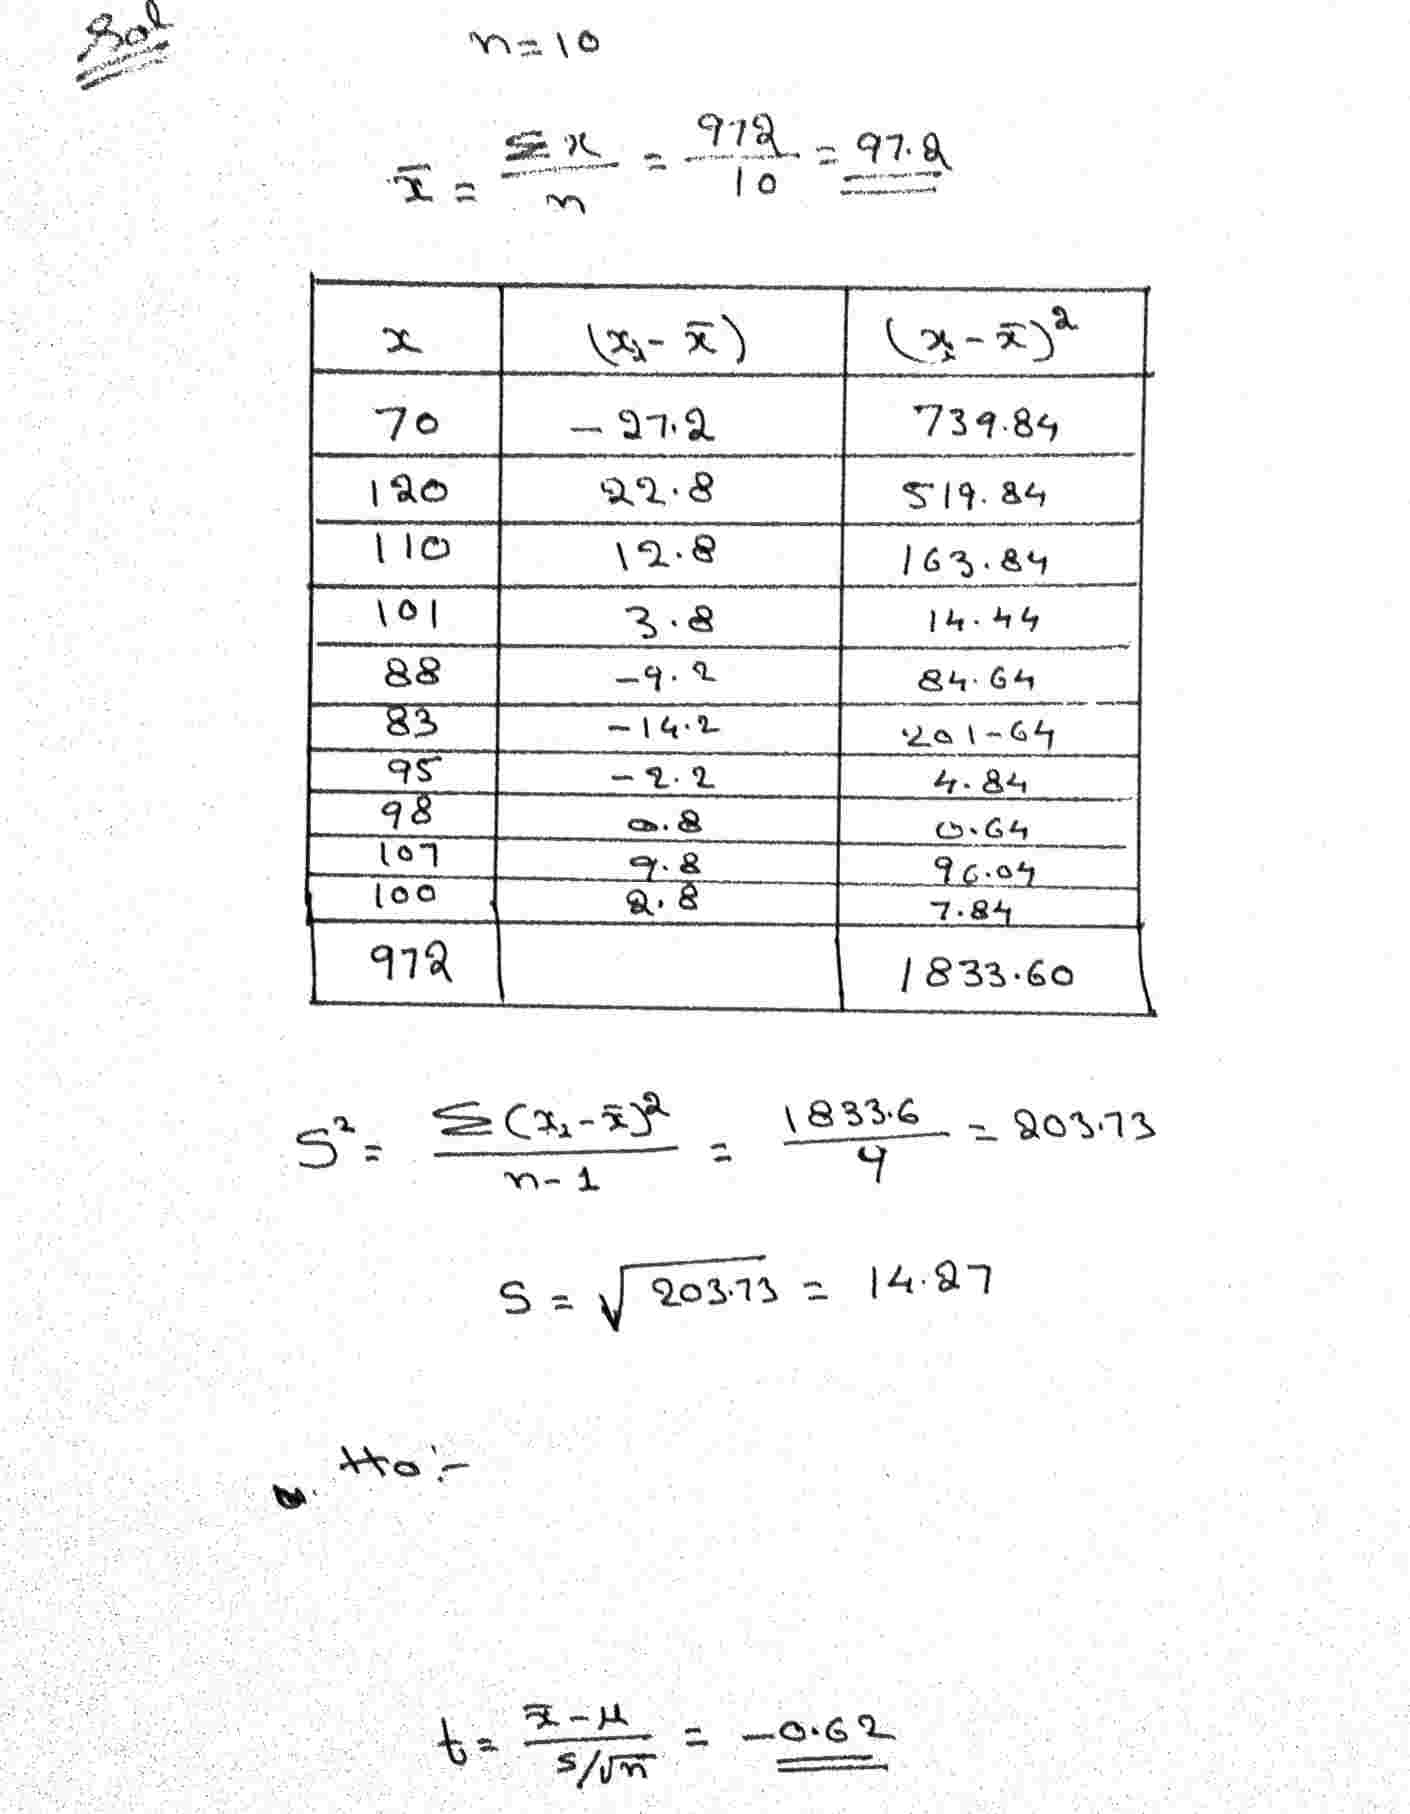 Sol
n=10
x̄ = Σx/n = 972/10 = 97.2
x (xi - x̄) (xi - x̄)²
70 -27.2 739.84
120 22.8 519.84
110 12.8 163.84
101 3.8 14.44
88 -9.2 84.64
83 -14.2 201-64
95 -2.2 4.84
98 0.8 0.64
107 9.8 96.04
100 2.8 7.84
972 1833.60
S² = Σ(xi - x̄)²/n-1 = 1833.6/9 = 203.73
S = √203.73 = 14.27
Ho:-
t = x̄-μ / s/√n = -0.62